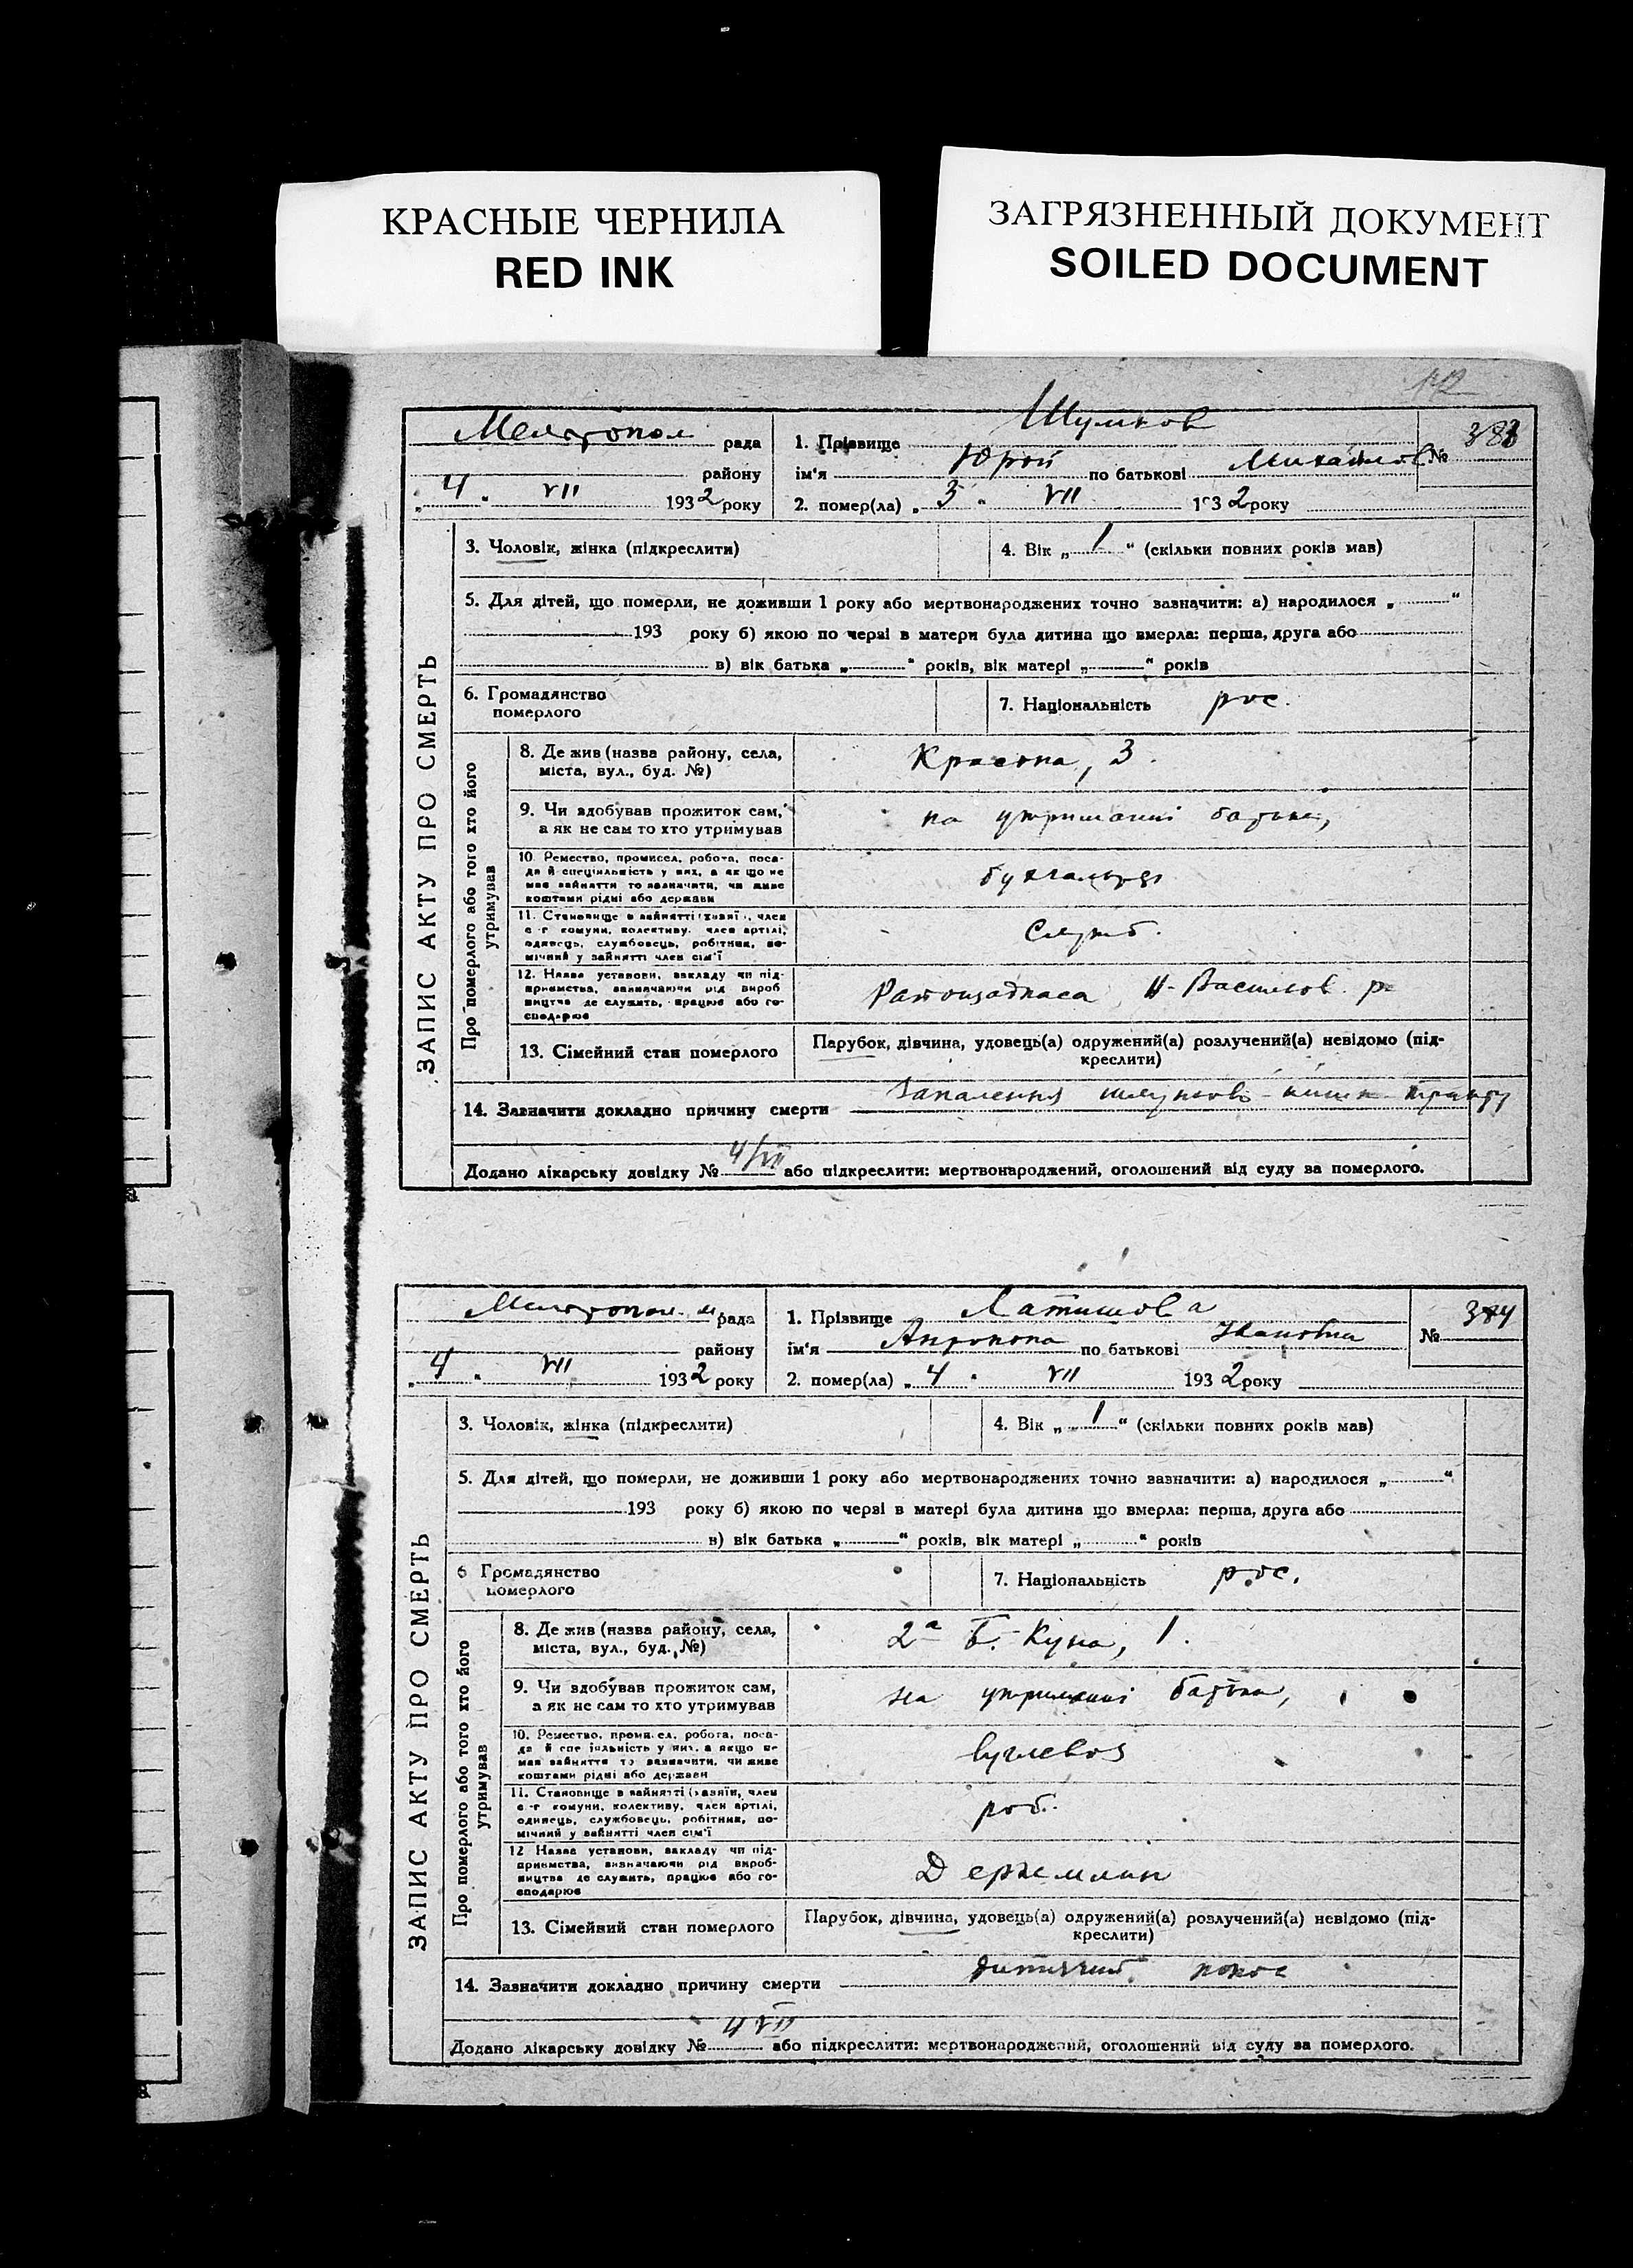 КРАСНЫЕ ЧЕРНИЛА
RED INK
ЗАГРЯЗНЕННЫЙ ДОКУМЕНТ
SOILED DOCUMENT
ЗАПИС АКТУ ПРО СМЕРТЬ
Мелітопол рада
району
„4“ VII 1932 року
1. Прізвище Шумков
ім'я Юрой по батькові Михайлов
№ 383
2. помер(ла) „3“ VII 1932 року
3. Чоловік, жінка (підкреслити)
4. Вік „1“ (скільки повних років мав)
5. Для дітей, що померли, не доживши 1 року або мертвонароджених точно зазначити: а) народилося „ “
193 року б) якою по черзі в матери була дитина що вмерла: перша, друга або
в) вік батька „ “ років, вік матері „ “ років
6. Громадянство
померлого
7. Національність рос.
Про померлого або того хто його
утримував
8. Де жив (назва району, села,
міста, вул., буд. №)
3.
9. Чи здобував прожиток сам,
а як не сам то хто утримував
на утриманні батька,
10. Ремество, промисел, робота, поса-
да й спеціяльність у них, а як що не
мав зайняття то зазначити, чи живе
коштами рідні або держави
бухгальтер
11. Становище в зайнятті (хазяїн, член
с-г комуни, колективу, член артілі,
одинець, службовець, робітник, по-
мічний у зайнятті член сім'ї
Служб.
12. Назва установи, закладу чи під-
приємства, зазначаючи рід вироб
ництва де служить, працює або го-
сподарює
Н-Васильов. р-
13. Сімейний стан померлого
Парубок, дівчина, удовець(а) одружений(а) розлучений(а) невідомо (під-
креслити)
14. Зазначити докладно причину смерти Запалення шлунково-кишк тракту
Додано лікарську довідку № 4/VII або підкреслити: мертвонароджений, оголошений від суду за померлого.
ЗАПИС АКТУ ПРО СМЕРТЬ
Мелітопол м. рада
району
„4“ VII 1932 року
1. Прізвище Латишова
ім'я по батькові Івановна
№ 384
2. помер(ла) „4“ VII 1932 року
3. Чоловік, жінка (підкреслити)
4. Вік „1“ (скільки повних років мав)
5. Для дітей, що померли, не доживши 1 року або мертвонароджених точно зазначити: а) народилося „ “
193 року б) якою по черзі в матері була дитина що вмерла: перша, друга або
в) вік батька „ “ років, вік матері „ “ років
6 Громадянство
померлого
7. Національність рос.
Про померлого або того хто його
утримував
8. Де жив (назва району, села,
міста, вул., буд., №)
2а Б. Куна, 1.
9. Чи здобував прожиток сам,
а як не сам то хто утримував
на утриманні батька,
10. Ремество, промисел, робота, поса-
да й спеціяльність у них, а якщо не
мав зайняття то зазначити, чи живе
коштами рідні або держави
11. Становище в зайнятті (хазяїн, член
с-г комуни, колективу, член артілі,
одинець, службовець, робітник, по-
мічний у зайнятті член сім'ї
роб.
12 Назва установи, закладу чи під-
приємства, визначаючи рід вироб-
ництва де служить, працює або го-
сподарює
Держмлин
13. Сімейний стан померлого
Парубок, дівчина, удовець(а) одружений(а) розлучений(а) невідомо (під-
креслити)
14. Зазначити докладно причину смерти дитячий понос
Додано лікарську довідку № 4 VII або підкреслити: мертвонароджений, оголошений від суду за померлого.